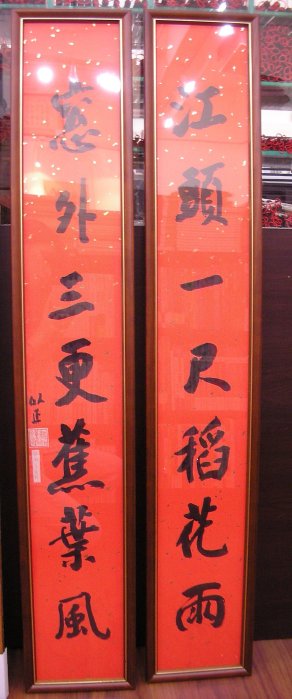 江頭一尺稻花雨
窓外三更蕉葉風